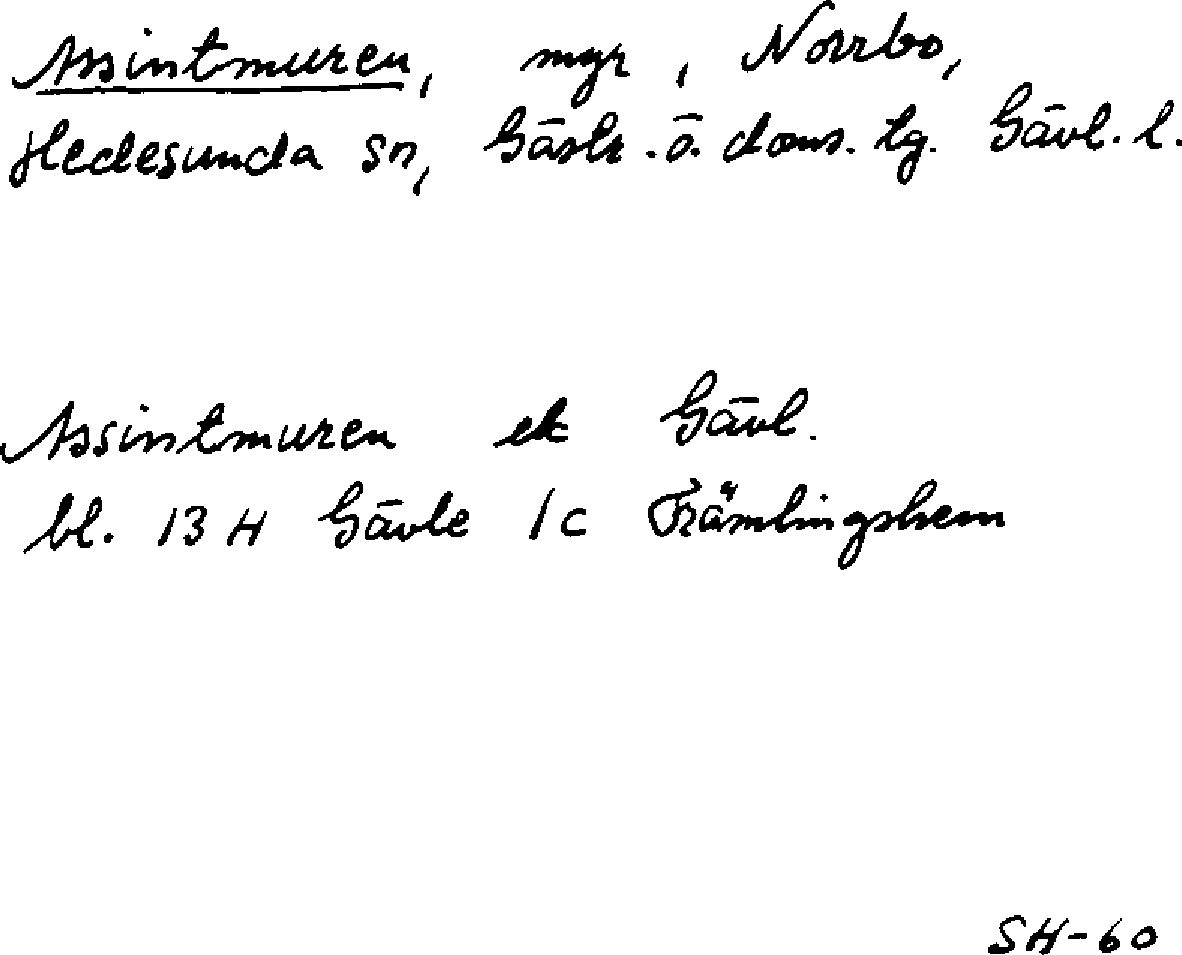 Assintmuren, myr, Norrbo,
Hedesunda sn, Gästr. ö. doms. tg. Gävl. l.
Assintmuren ek Gävl.
bl. 13 H Gävle 1c Främlingshem
SH-60